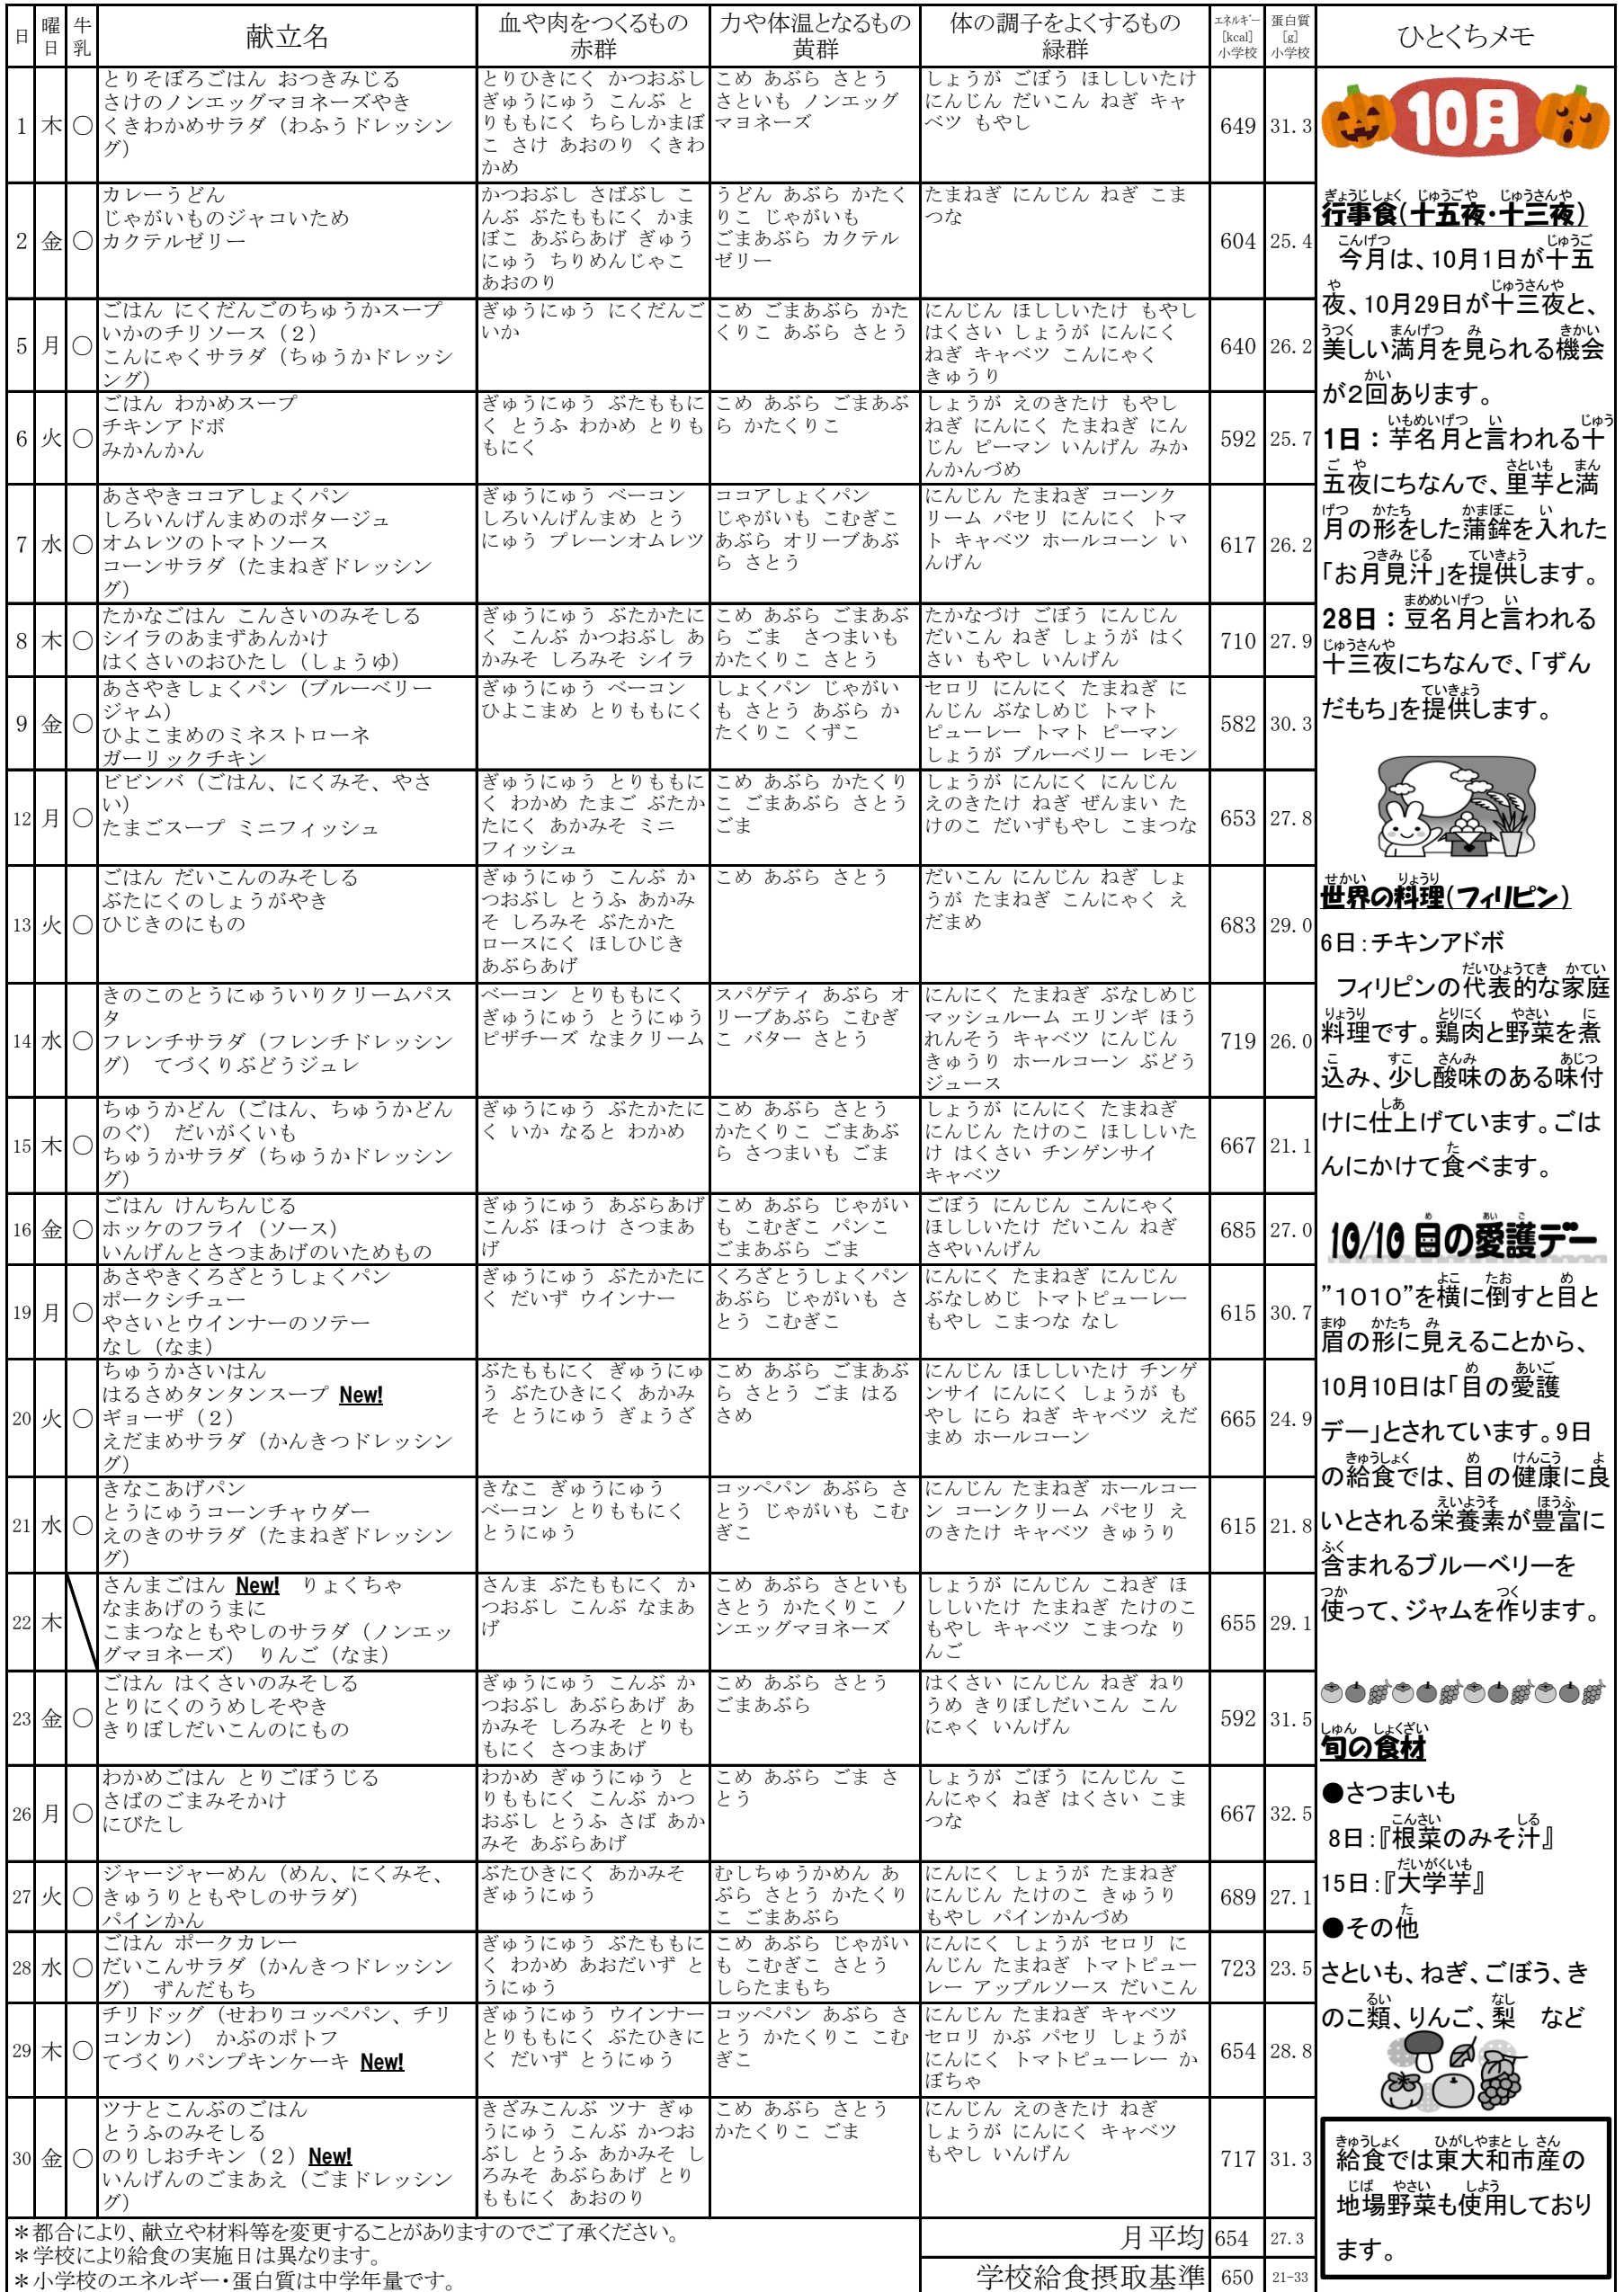 日 曜日 牛乳 献立名 血や肉をつくるもの 赤群 力や体温となるもの 黄群 体の調子をよくするもの 緑群 エネルギー [kcal] 小学校 蛋白質 [g] 小学校 ひとくちメモ
1 木 ○
とりそぼろごはん おつきみじる
さけのノンエッグマヨネーズやき
くきわかめサラダ（わふうドレッシン
グ）
とりひきにく かつおぶし
ぎゅうにゅう こんぶ と
りももにく ちらしかまぼ
こ さけ あおのり くきわ
かめ
こめ あぶら さとう
さといも ノンエッグ
マヨネーズ
しょうが ごぼう ほししいたけ
にんじん だいこん ねぎ キャ
ベツ もやし
649 31.3
2 金 ○
カレーうどん
じゃがいものジャコいため
カクテルゼリー
かつおぶし さばぶし こ
んぶ ぶたももにく かま
ぼこ あぶらあげ ぎゅう
にゅう ちりめんじゃこ
あおのり
うどん あぶら かたく
りこ じゃがいも
ごまあぶら カクテル
ゼリー
たまねぎ にんじん ねぎ こま
つな
604 25.4
5 月 ○
ごはん にくだんごのちゅうかスープ
いかのチリソース（２）
こんにゃくサラダ（ちゅうかドレッシ
ング）
ぎゅうにゅう にくだんご
いか
こめ ごまあぶら かた
くりこ あぶら さとう
にんじん ほししいたけ もやし
はくさい しょうが にんにく
ねぎ キャベツ こんにゃく
きゅうり
640 26.2
6 火 ○
ごはん わかめスープ
チキンアドボ
みかんかん
ぎゅうにゅう ぶたももに
く とうふ わかめ とりも
もにく
こめ あぶら ごまあぶ
ら かたくりこ
しょうが えのきたけ もやし
ねぎ にんにく たまねぎ にん
じん ピーマン いんげん みか
んかんづめ
592 25.7
7 水 ○
あさやきココアしょくパン
しろいんげんまめのポタージュ
オムレツのトマトソース
コーンサラダ（たまねぎドレッシン
グ）
ぎゅうにゅう ベーコン
しろいんげんまめ とう
にゅう プレーンオムレツ
ココアしょくパン
じゃがいも こむぎこ
あぶら オリーブあぶ
ら さとう
にんじん たまねぎ コーンク
リーム パセリ にんにく トマ
ト キャベツ ホールコーン い
んげん
617 26.2
8 木 ○
たかなごはん こんさいのみそしる
シイラのあまずあんかけ
はくさいのおひたし（しょうゆ）
ぎゅうにゅう ぶたかたに
く こんぶ かつおぶし あ
かみそ しろみそ シイラ
こめ あぶら ごまあぶ
ら ごま さつまいも
かたくりこ さとう
たかなづけ ごぼう にんじん
だいこん ねぎ しょうが はく
さい もやし いんげん
710 27.9
9 金 ○
あさやきしょくパン（ブルーベリー
ジャム）
ひよこまめのミネストローネ
ガーリックチキン
ぎゅうにゅう ベーコン
ひよこまめ とりももにく
しょくパン じゃがい
も さとう あぶら か
たくりこ くずこ
セロリ にんにく たまねぎ に
んじん ぶなしめじ トマト
ピューレー トマト ピーマン
しょうが ブルーベリー レモン
582 30.3
12 月 ○
ビビンバ（ごはん、にくみそ、やさ
い）
たまごスープ ミニフィッシュ
ぎゅうにゅう とりももに
く わかめ たまご ぶたか
たにく あかみそ ミニ
フィッシュ
こめ あぶら かたくり
こ ごまあぶら さとう
ごま
しょうが にんにく にんじん
えのきたけ ねぎ ぜんまい た
けのこ だいずもやし こまつな
653 27.8
13 火 ○
ごはん だいこんのみそしる
ぶたにくのしょうがやき
ひじきのにもの
ぎゅうにゅう こんぶ か
つおぶし とうふ あかみ
そ しろみそ ぶたかた
ロースにく ほしひじき
あぶらあげ
こめ あぶら さとう
だいこん にんじん ねぎ しょ
うが たまねぎ こんにゃく え
だまめ
683 29.0
14 水 ○
きのこのとうにゅういりクリームパス
タ
フレンチサラダ（フレンチドレッシン
グ） てづくりぶどうジュレ
ベーコン とりももにく
ぎゅうにゅう とうにゅう
ピザチーズ なまクリーム
スパゲティ あぶら オ
リーブあぶら こむぎ
こ バター さとう
にんにく たまねぎ ぶなしめじ
マッシュルーム エリンギ ほう
れんそう キャベツ にんじん
きゅうり ホールコーン ぶどう
ジュース
719 26.0
15 木 ○
ちゅうかどん（ごはん、ちゅうかどん
のぐ） だいがくいも
ちゅうかサラダ（ちゅうかドレッシン
グ）
ぎゅうにゅう ぶたかたに
く いか なると わかめ
こめ あぶら さとう
かたくりこ ごまあぶ
ら さつまいも ごま
しょうが にんにく たまねぎ
にんじん たけのこ ほししいた
け はくさい チンゲンサイ
キャベツ
667 21.1
16 金 ○
ごはん けんちんじる
ホッケのフライ（ソース）
いんげんとさつまあげのいためもの
ぎゅうにゅう あぶらあげ
こんぶ ほっけ さつまあ
げ
こめ あぶら じゃがい
も こむぎこ パンこ
ごまあぶら ごま
ごぼう にんじん こんにゃく
ほししいたけ だいこん ねぎ
さやいんげん
685 27.0
19 月 ○
あさやきくろざとうしょくパン
ポークシチュー
やさいとウインナーのソテー
なし（なま）
ぎゅうにゅう ぶたかたに
く だいず ウインナー
くろざとうしょくパン
あぶら じゃがいも さ
とう こむぎこ
にんにく たまねぎ にんじん
ぶなしめじ トマトピューレー
もやし こまつな なし
615 30.7
20 火 ○
ちゅうかさいはん
はるさめタンタンスープ New!
ギョーザ（２）
えだまめサラダ（かんきつドレッシン
グ）
ぶたももにく ぎゅうにゅ
う ぶたひきにく あかみ
そ とうにゅう ぎょうざ
こめ あぶら ごまあぶ
ら さとう ごま はる
さめ
にんじん ほししいたけ チンゲ
ンサイ にんにく しょうが も
やし にら ねぎ キャベツ えだ
まめ ホールコーン
665 24.9
21 水 ○
きなこあげパン
とうにゅうコーンチャウダー
えのきのサラダ（たまねぎドレッシン
グ）
きなこ ぎゅうにゅう
ベーコン とりももにく
とうにゅう
コッペパン あぶら さ
とう じゃがいも こむ
ぎこ
にんじん たまねぎ ホールコー
ン コーンクリーム パセリ え
のきたけ キャベツ きゅうり
615 21.8
22 木
さんまごはん New! りょくちゃ
なまあげのうまに
こまつなともやしのサラダ（ノンエッ
グマヨネーズ） りんご（なま）
さんま ぶたももにく か
つおぶし こんぶ なまあ
げ
こめ あぶら さといも
さとう かたくりこ ノ
ンエッグマヨネーズ
しょうが にんじん こねぎ ほ
ししいたけ たまねぎ たけのこ
もやし キャベツ こまつな り
んご
655 29.1
23 金 ○
ごはん はくさいのみそしる
とりにくのうめしそやき
きりぼしだいこんのにもの
ぎゅうにゅう こんぶ か
つおぶし あぶらあげ あ
かみそ しろみそ とりも
もにく さつまあげ
こめ あぶら さとう
ごまあぶら
はくさい にんじん ねぎ ねり
うめ きりぼしだいこん こん
にゃく いんげん
592 31.5
26 月 ○
わかめごはん とりごぼうじる
さばのごまみそかけ
にびたし
わかめ ぎゅうにゅう と
りももにく こんぶ かつ
おぶし とうふ さば あか
みそ あぶらあげ
こめ あぶら ごま さ
とう
しょうが ごぼう にんじん こ
んにゃく ねぎ はくさい こま
つな
667 32.5
27 火 ○
ジャージャーめん（めん、にくみそ、
きゅうりともやしのサラダ）
パインかん
ぶたひきにく あかみそ
ぎゅうにゅう
むしちゅうかめん あ
ぶら さとう かたくり
こ ごまあぶら
にんにく しょうが たまねぎ
にんじん たけのこ きゅうり
もやし パインかんづめ
689 27.1
28 水 ○
ごはん ポークカレー
だいこんサラダ（かんきつドレッシン
グ） ずんだもち
ぎゅうにゅう ぶたももに
く わかめ あおだいず と
うにゅう
こめ あぶら じゃがい
も こむぎこ さとう
しらたまもち
にんにく しょうが セロリ に
んじん たまねぎ トマトピュー
レー アップルソース だいこん
723 23.5
29 木 ○
チリドッグ（せわりコッペパン、チリ
コンカン） かぶのポトフ
てづくりパンプキンケーキ New!
ぎゅうにゅう ウインナー
とりももにく ぶたひきに
く だいず とうにゅう
コッペパン あぶら さ
とう かたくりこ こむ
ぎこ
にんじん たまねぎ キャベツ
セロリ かぶ パセリ しょうが
にんにく トマトピューレー か
ぼちゃ
654 28.8
30 金 ○
ツナとこんぶのごはん
とうふのみそしる
のりしおチキン（２）New!
いんげんのごまあえ（ごまドレッシン
グ）
きざみこんぶ ツナ ぎゅ
うにゅう こんぶ かつお
ぶし とうふ あかみそ し
ろみそ あぶらあげ とり
ももにく あおのり
こめ あぶら さとう
かたくりこ ごま
にんじん えのきたけ ねぎ
しょうが にんにく キャベツ
もやし いんげん
717 31.3
＊都合により、献立や材料等を変更することがありますのでご了承ください。
＊学校により給食の実施日は異なります。
＊小学校のエネルギー・蛋白質は中学年量です。
月平均 654 27.3
学校給食摂取基準 650 21-33
10月
ぎょうじしょく じゅうごや じゅうさんや
行事食(十五夜・十三夜)
こんげつ じゅうご
今月は、10月1日が十五
や じゅうさんや
夜、10月29日が十三夜と、
うつく まんげつ み きかい
美しい満月を見られる機会
かい
が2回あります。
いもめいげつ い じゅう
1日：芋名月と言われる十
ご や さといも まん
五夜にちなんで、里芋と満
げつ かたち かまぼこ い
月の形をした蒲鉾を入れた
つきみ じる ていきょう
「お月見汁」を提供します。
まめめいげつ い
28日：豆名月と言われる
じゅうさんや
十三夜にちなんで、「ずん
ていきょう
だもち」を提供します。
せかい りょうり
世界の料理(フィリピン)
6日：チキンアドボ
だいひょうてき かてい
フィリピンの代表的な家庭
りょうり とりにく やさい に
料理です。鶏肉と野菜を煮
こ すこ さんみ あじつ
込み、少し酸味のある味付
しあ
けに仕上げています。ごは
た
んにかけて食べます。
め あい ご
10/10 目の愛護デー
よこ たお め
”1010”を横に倒すと目と
まゆ かたち み
眉の形に見えることから、
め あいご
10月10日は「目の愛護
デー」とされています。9日
きゅうしょく め けんこう よ
の給食では、目の健康に良
えいようそ ほうふ
いとされる栄養素が豊富に
ふく
含まれるブルーベリーを
つか つく
使って、ジャムを作ります。
しゅん しょくざい
旬の食材
●さつまいも
こんさい しる
8日：『根菜のみそ汁』
だいがくいも
15日：『大学芋』
た
●その他
さといも、ねぎ、ごぼう、き
るい なし
のこ類、りんご、梨 など
きゅうしょく ひがしやまとし さん
給食では東大和市産の
じば やさい しよう
地場野菜も使用しており
ます。